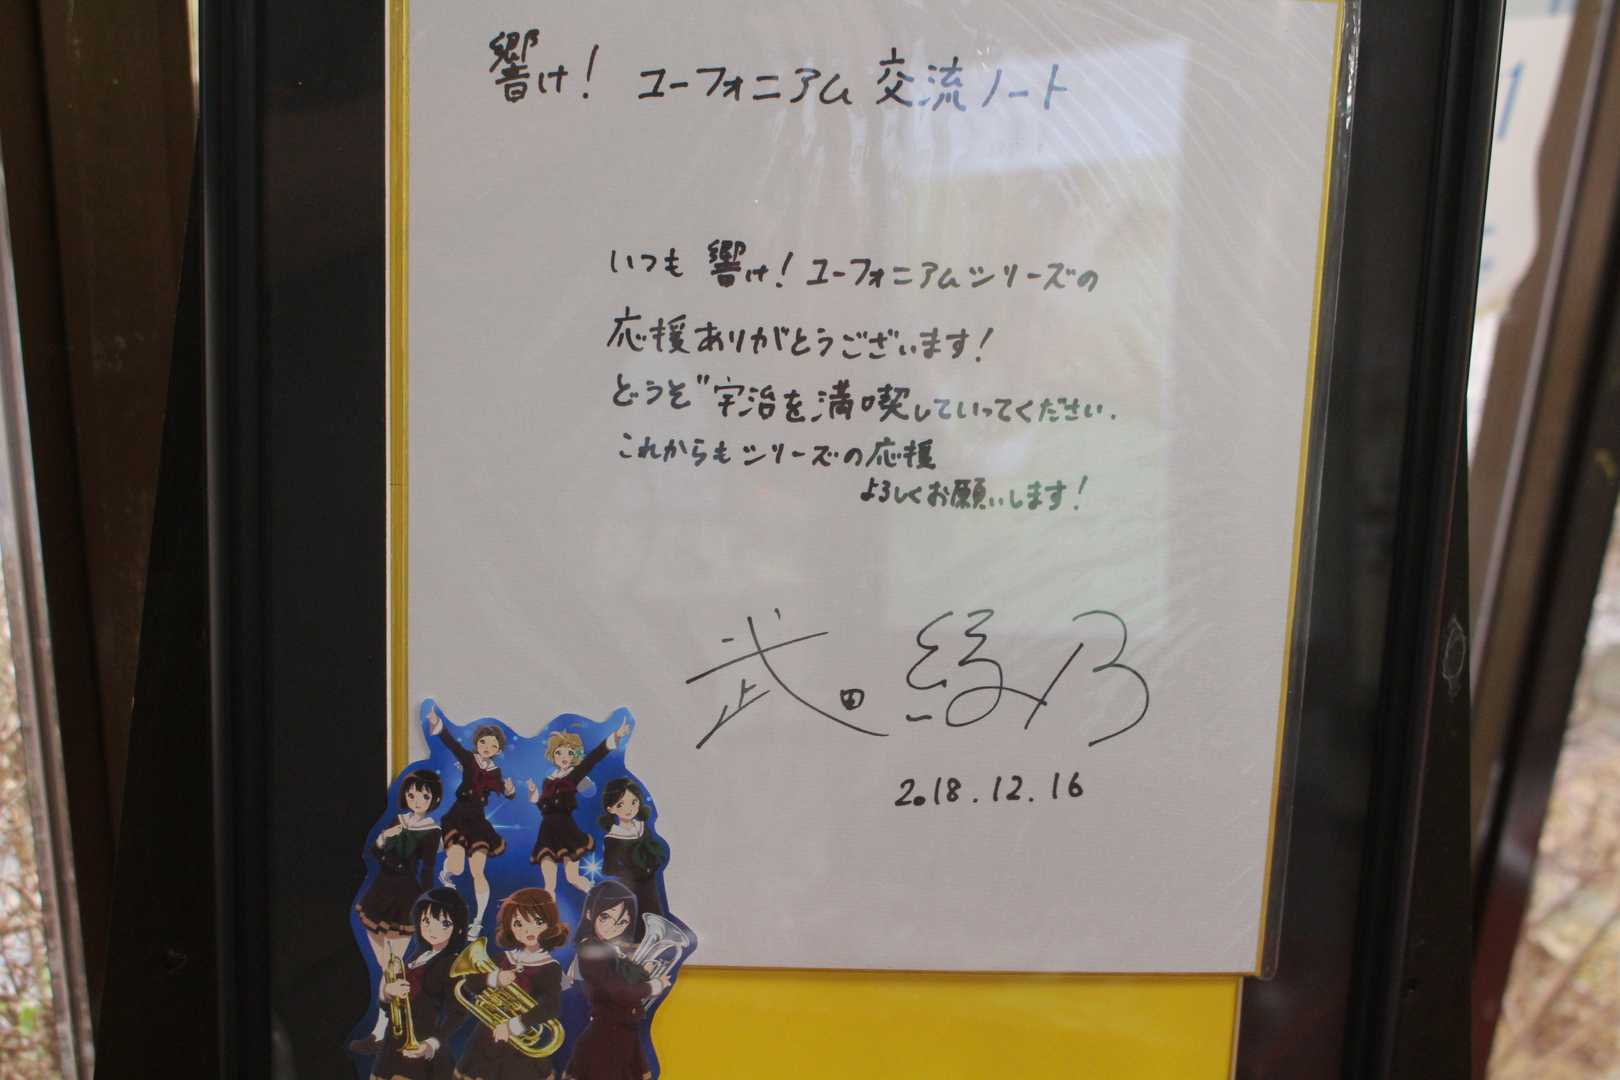 響け! ユーフォニアム 交流ノート
いつも 響け! ユーフォニアムシリーズの
応援ありがとうございます!
どうぞ宇治を満喫していってください.
これからもシリーズの応援
よろしくお願いします!
武田 綾乃
2018.12.16